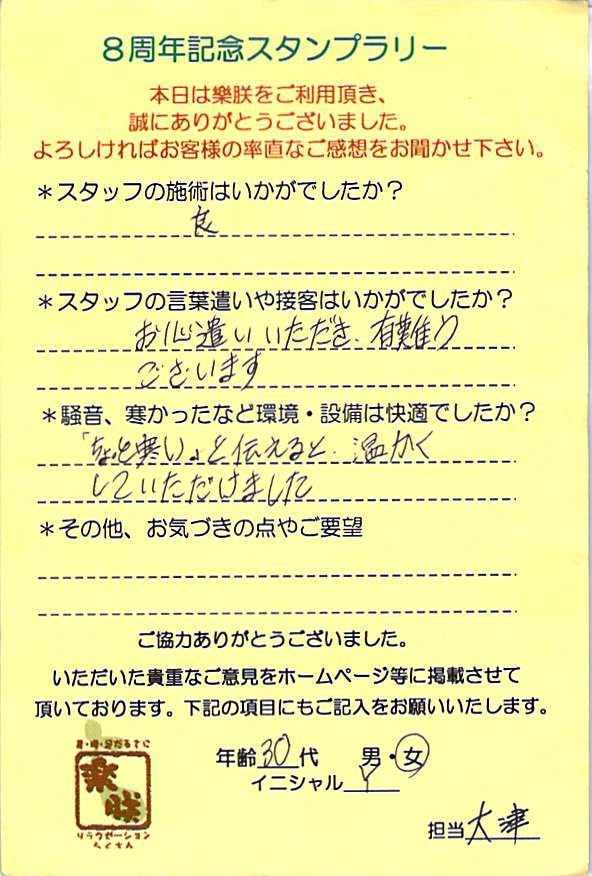 8周年記念スタンプラリー
本日は樂朕をご利用頂き、
誠にありがとうございました。
よろしければお客様の率直なご感想をお聞かせ下さい。
＊スタッフの施術はいかがでしたか？
良
＊スタッフの言葉遣いや接客はいかがでしたか？
お心遣いいただき、有難う
ございます
＊騒音、寒かったなど環境・設備は快適でしたか？
「ちょっと寒い」と伝えると、温かく
していただけました
＊その他、お気づきの点やご要望
ご協力ありがとうございました。
いただいた貴重なご意見をホームページ等に掲載させて
頂いております。下記の項目にもご記入をお願いいたします。
年齢30代 男・女
イニシャル Y
担当 大津
樂朕
リラクゼーション
らくちん